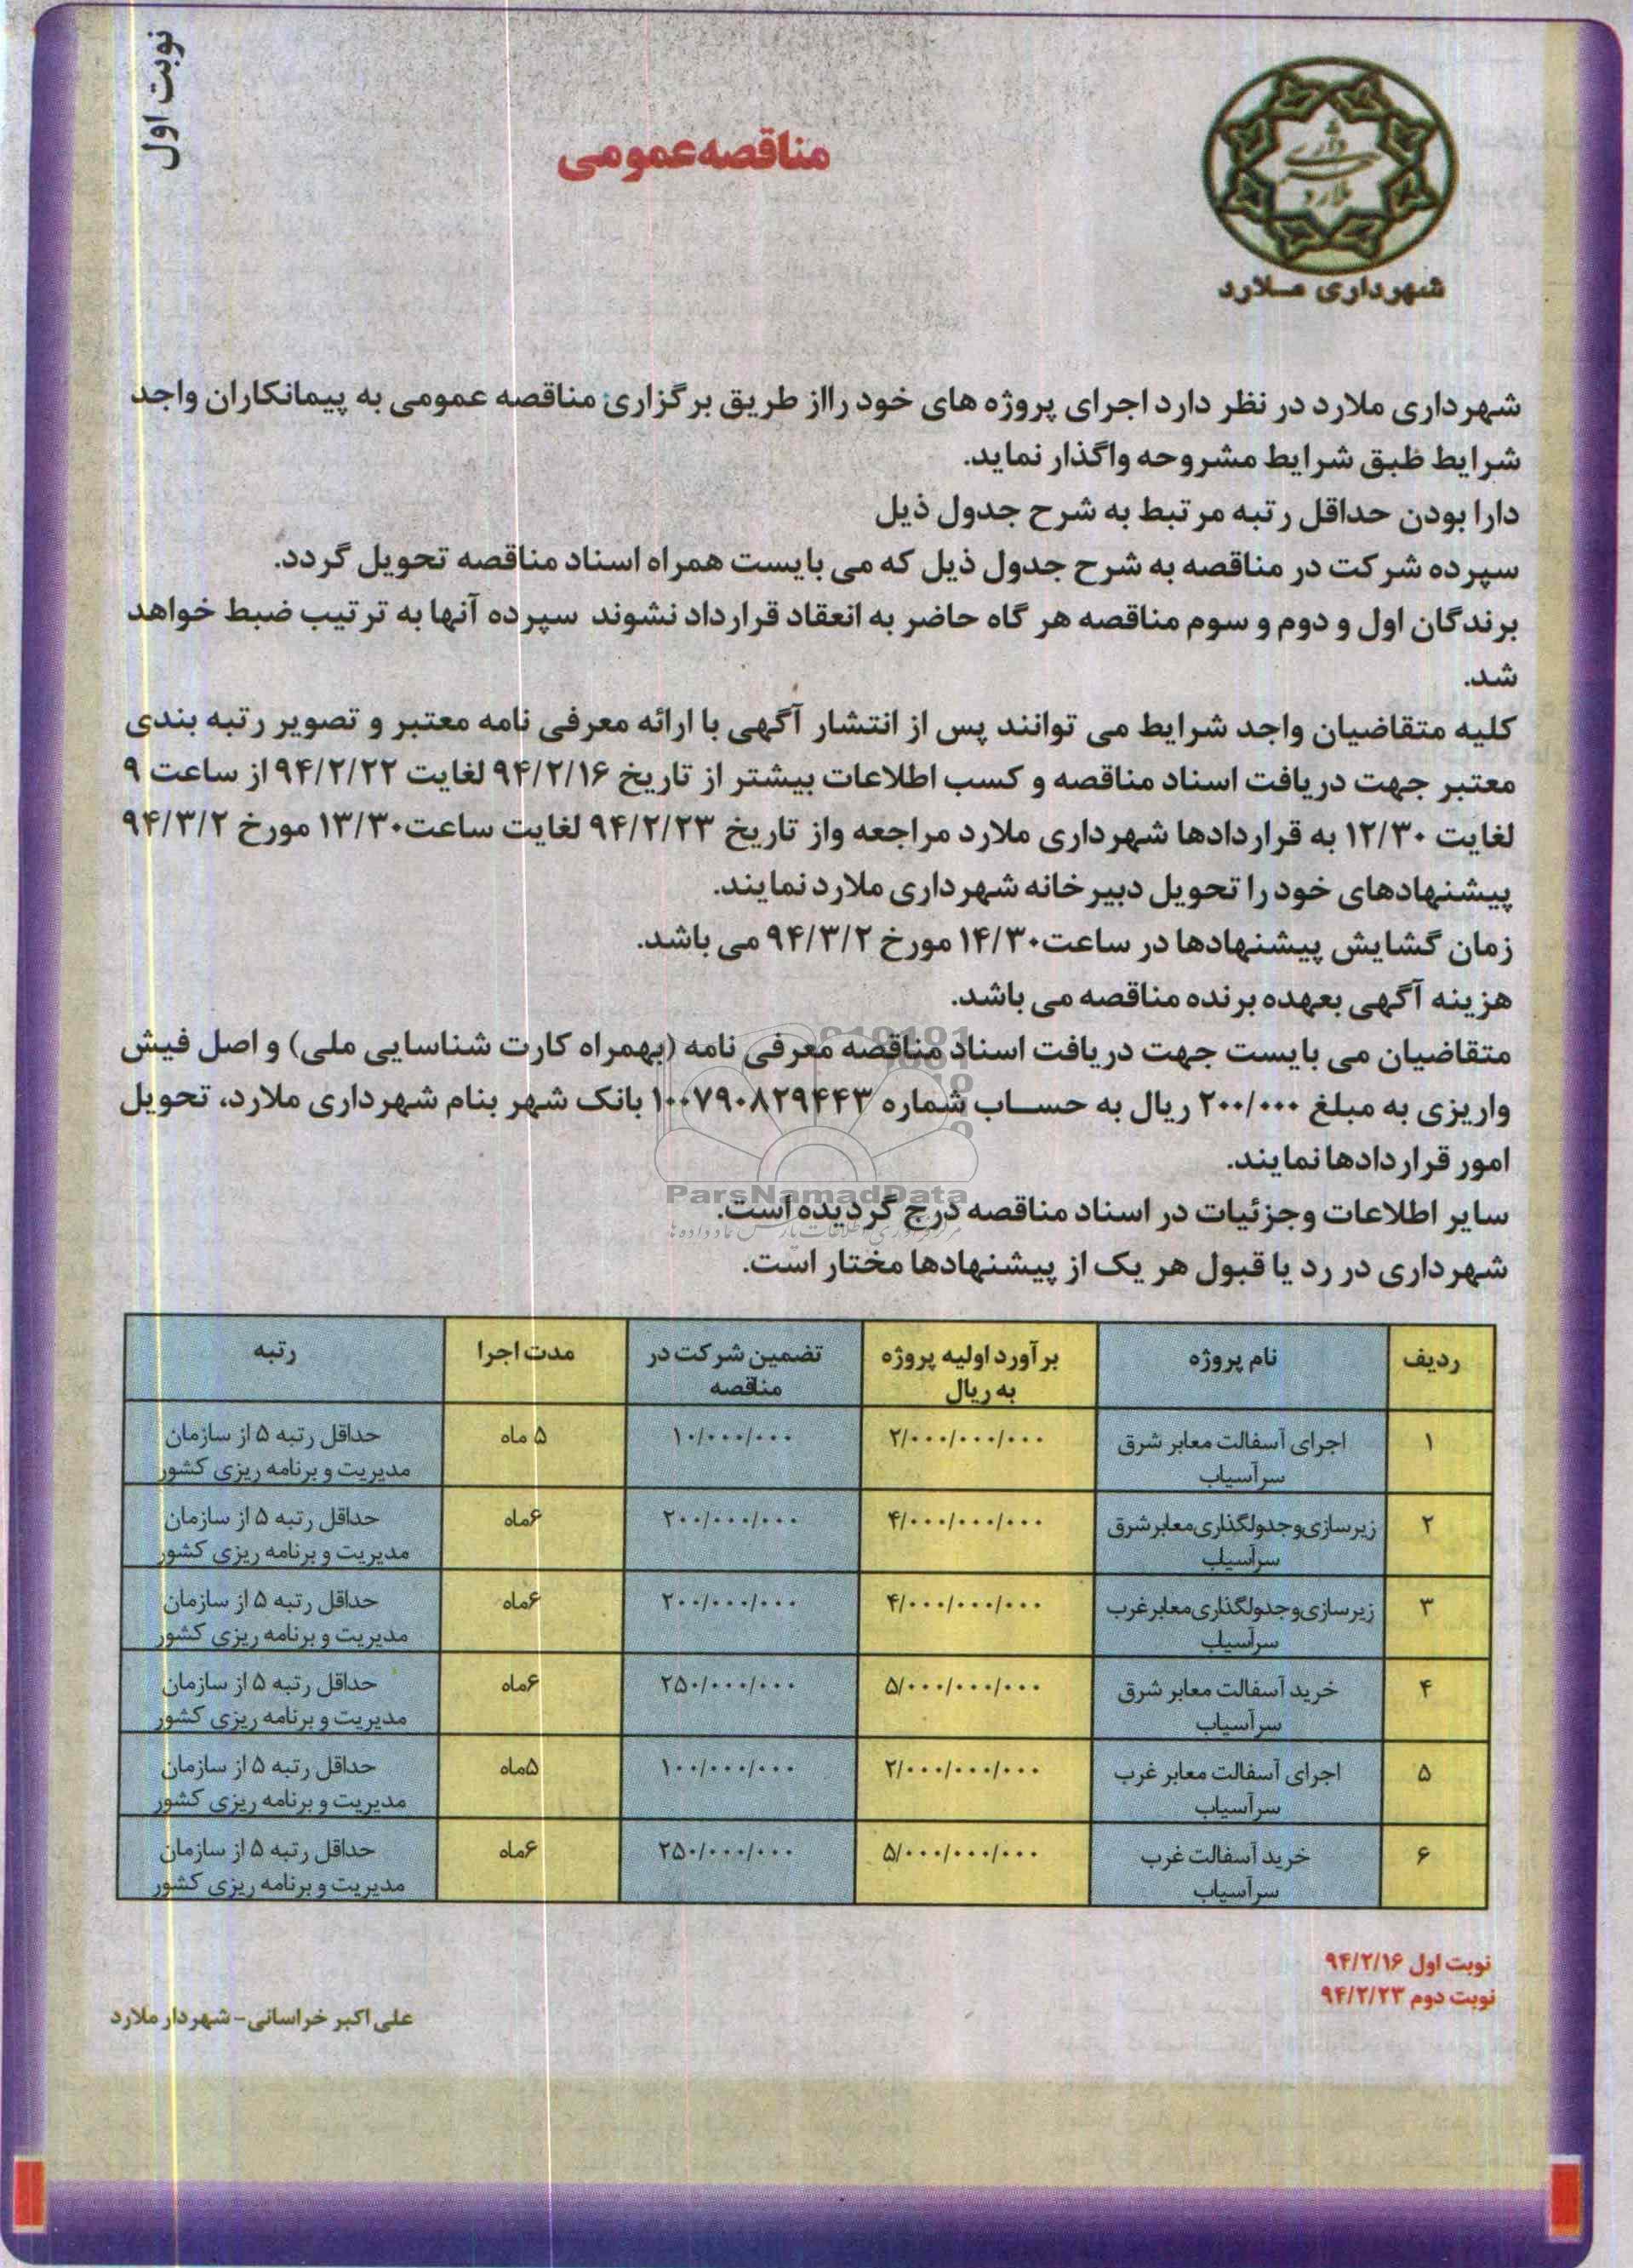 نوبت اول
مناقصه عمومی
شهرداری ملارد
شهرداری ملارد در نظر دارد اجرای پروژه های خود رااز طریق برگزاری مناقصه عمومی به پیمانکاران واجد
شرایط طبق شرایط مشروحه واگذار نماید.
دارا بودن حداقل رتبه مرتبط به شرح جدول ذیل
سپرده شرکت در مناقصه به شرح جدول ذیل که می بایست همراه اسناد مناقصه تحویل گردد.
برندگان اول و دوم و سوم مناقصه هر گاه حاضر به انعقاد قرارداد نشوند سپرده آنها به ترتیب ضبط خواهد
شد.
کلیه متقاضیان واجد شرایط می توانند پس از انتشار آگهی با ارائه معرفی نامه معتبر و تصویر رتبه بندی
معتبر جهت دریافت اسناد مناقصه و کسب اطلاعات بیشتر از تاریخ ۹۴/۲/۱۶ لغایت ۹۴/۲/۲۲ از ساعت ۹
لغایت ۱۲/۳۰ به قراردادها شهرداری ملارد مراجعه واز تاریخ ۹۴/۲/۲۳ لغایت ساعت۱۳/۳۰ مورخ ۹۴/۳/۲
پیشنهادهای خود را تحویل دبیرخانه شهرداری ملارد نمایند.
زمان گشایش پیشنهادها در ساعت۱۴/۳۰ مورخ ۹۴/۳/۲ می باشد.
هزینه آگهی بعهده برنده مناقصه می باشد.
متقاضیان می بایست جهت دریافت اسناد مناقصه معرفی نامه (بهمراه کارت شناسایی ملی) و اصل فیش
واریزی به مبلغ ۲۰۰/۰۰۰ ریال به حساب شماره ۱۰۰۷۹۰۸۲۹۴۴۳ بانک شهر بنام شهرداری ملارد، تحویل
امور قراردادها نمایند.
ParsNamadData
سایر اطلاعات وجزئیات در اسناد مناقصه درج گردیده است.
شهرداری در رد یا قبول هر یک از پیشنهادها مختار است.
ردیف نام پروژه برآورد اولیه پروژه به ریال تضمین شرکت در مناقصه مدت اجرا رتبه
۱ اجرای آسفالت معابر شرق سرآسیاب ۲/۰۰۰/۰۰۰/۰۰۰ ۱۰/۰۰۰/۰۰۰ ۵ ماه حداقل رتبه ۵ از سازمان مدیریت و برنامه ریزی کشور
۲ زیرسازی‌وجدولگذاری‌معابرشرق سرآسیاب ۴/۰۰۰/۰۰۰/۰۰۰ ۲۰۰/۰۰۰/۰۰۰ ۶ماه حداقل رتبه ۵ از سازمان مدیریت و برنامه ریزی کشور
۳ زیرسازی‌وجدولگذاری‌معابرغرب سرآسیاب ۴/۰۰۰/۰۰۰/۰۰۰ ۲۰۰/۰۰۰/۰۰۰ ۶ماه حداقل رتبه ۵ از سازمان مدیریت و برنامه ریزی کشور
۴ خرید آسفالت معابر شرق سرآسیاب ۵/۰۰۰/۰۰۰/۰۰۰ ۲۵۰/۰۰۰/۰۰۰ ۶ماه حداقل رتبه ۵ از سازمان مدیریت و برنامه ریزی کشور
۵ اجرای آسفالت معابر غرب سرآسیاب ۲/۰۰۰/۰۰۰/۰۰۰ ۱۰۰/۰۰۰/۰۰۰ ۵ماه حداقل رتبه ۵ از سازمان مدیریت و برنامه ریزی کشور
۶ خرید آسفالت غرب سرآسیاب ۵/۰۰۰/۰۰۰/۰۰۰ ۲۵۰/۰۰۰/۰۰۰ ۶ماه حداقل رتبه ۵ از سازمان مدیریت و برنامه ریزی کشور
نوبت اول ۹۴/۲/۱۶
نوبت دوم ۹۴/۲/۲۳
علی اکبر خراسانی- شهردار ملارد